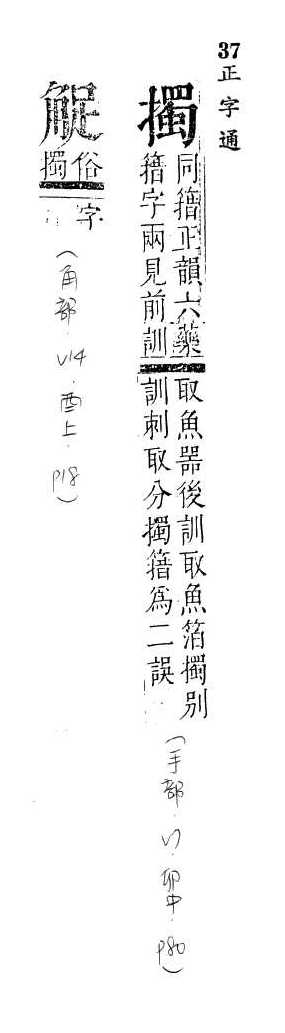 37 正字通
擉
同簎正韻六藥
簎字兩見前訓
取魚器後訓取魚箔擉別
訓刺取分擉簎爲二誤
(手部·卯中·p80)
俗
擉
字
(角部·V14·酉上·p18)